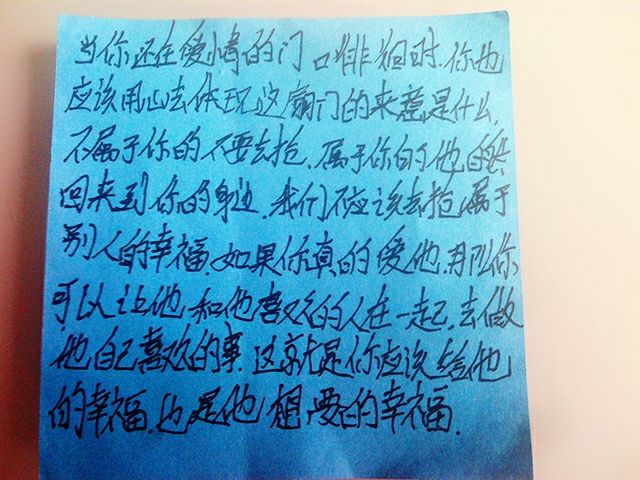 当你还在爱情的门口徘徊时.你也
应该用心去体现这扇门的来意是什么,
不属于你的不要去抢.属于你的他自然
回来到你的身边.我们不应该去抢属于
别人的幸福.如果你真的爱他.那么你
可以让他和他喜欢的人在一起.去做
他自己喜欢的事.这就是你应该给他
的幸福.也是他想要的幸福.